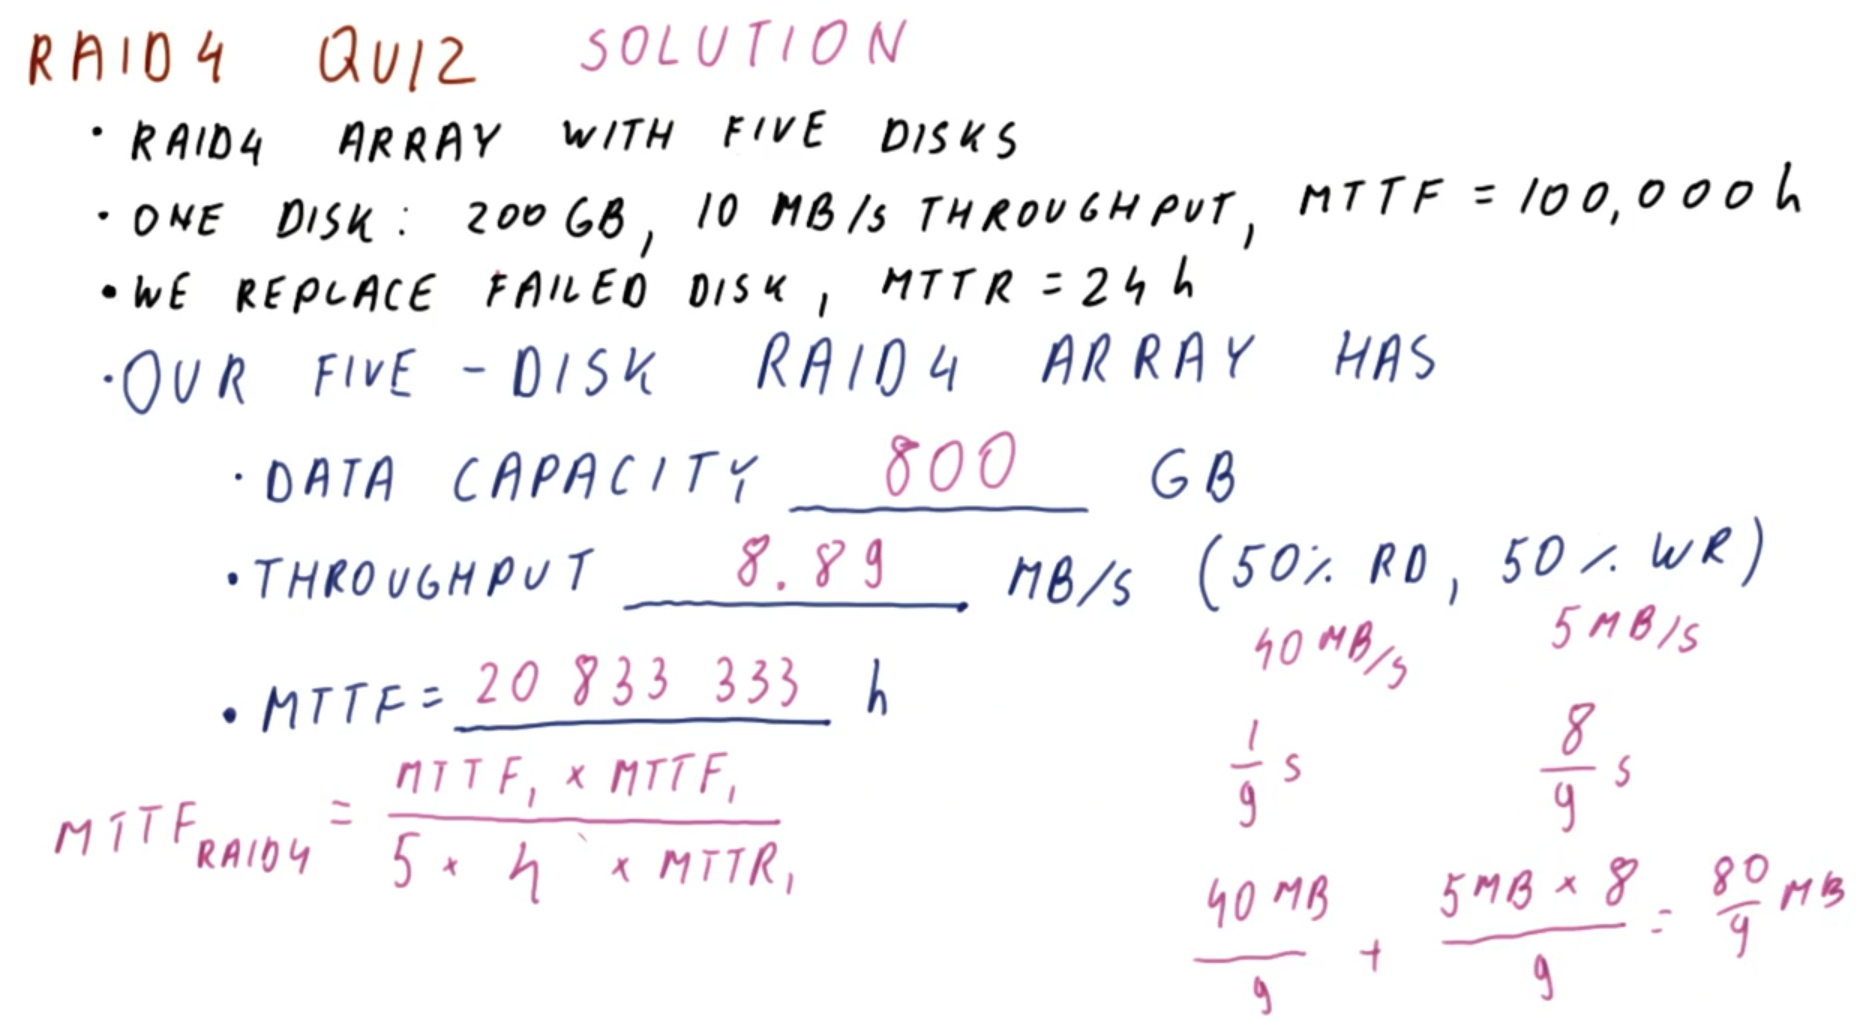 RAID4 QUIZ SOLUTION
• RAID4 ARRAY WITH FIVE DISKS
• ONE DISK: 200 GB, 10 MB/s THROUGHPUT, MTTF = 100,000 h
• WE REPLACE FAILED DISK, MTTR = 24 h
• OUR FIVE-DISK RAID4 ARRAY HAS
• DATA CAPACITY 800 GB
• THROUGHPUT 8.89 MB/s (50% RD, 50% WR)
40 MB/s 5 MB/s
• MTTF = 20 833 333 h
1/9 s 8/9 s
MTTF RAID4 = MTTF1 × MTTF1 / 5 × 4 × MTTR1
40 MB / 9 + 5 MB × 8 / 9 = 80/9 MB